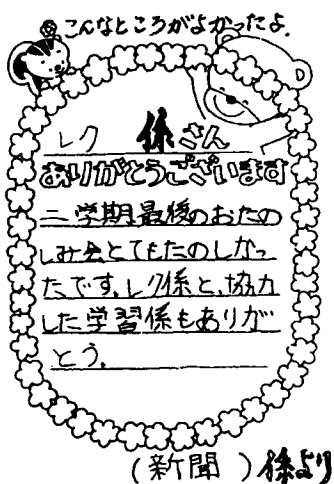 こんなところがよかったよ.
レク 係さん
ありがとうございます
二学期最後のおたの
しみ会とてもたのしかっ
たです。レク係と、協力
した学習係もありが
とう。
(新聞)係より